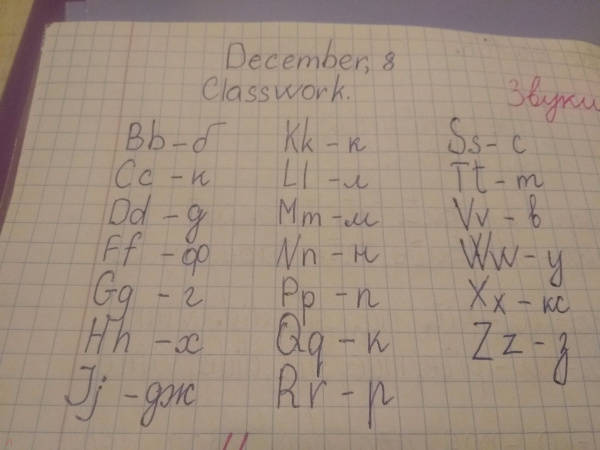 December, 8
Classwork.
Звуки
Bb - б
Cc - к
Dd - д
Ff - ф
Gg - г
Hh - х
Jj - дж
Kk - к
Ll - л
Mm - м
Nn - н
Pp - п
Qq - к
Rr - р
Ss - с
Tt - т
Vv - в
Ww - у
Xx - кс
Zz - з